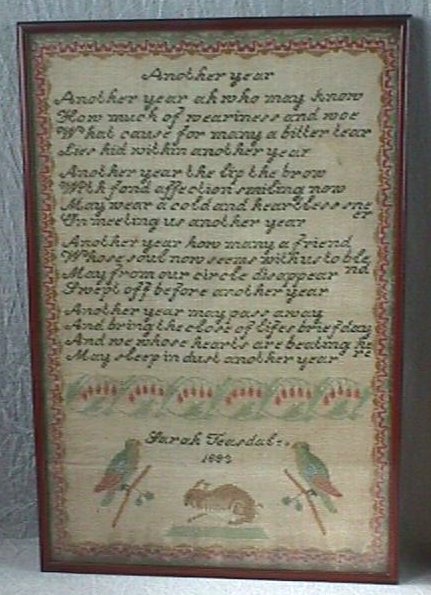 Another year
Another year ah who may know
How much of weariness and woe
What cause for many a bitter tear
Lies hid within another year
Another year the lip the brow
With fond affection smiling now
May wear a cold and heartless sneer
On meeting us another year
Another year how many a friend
Whose soul now seems with us to blend
May from our circle disappear
Swept off before another year
Another year may pass away
And bring the close of lifes brief day
And we whose hearts are beating here
May sleep in dust another year
Sarah Teasdal